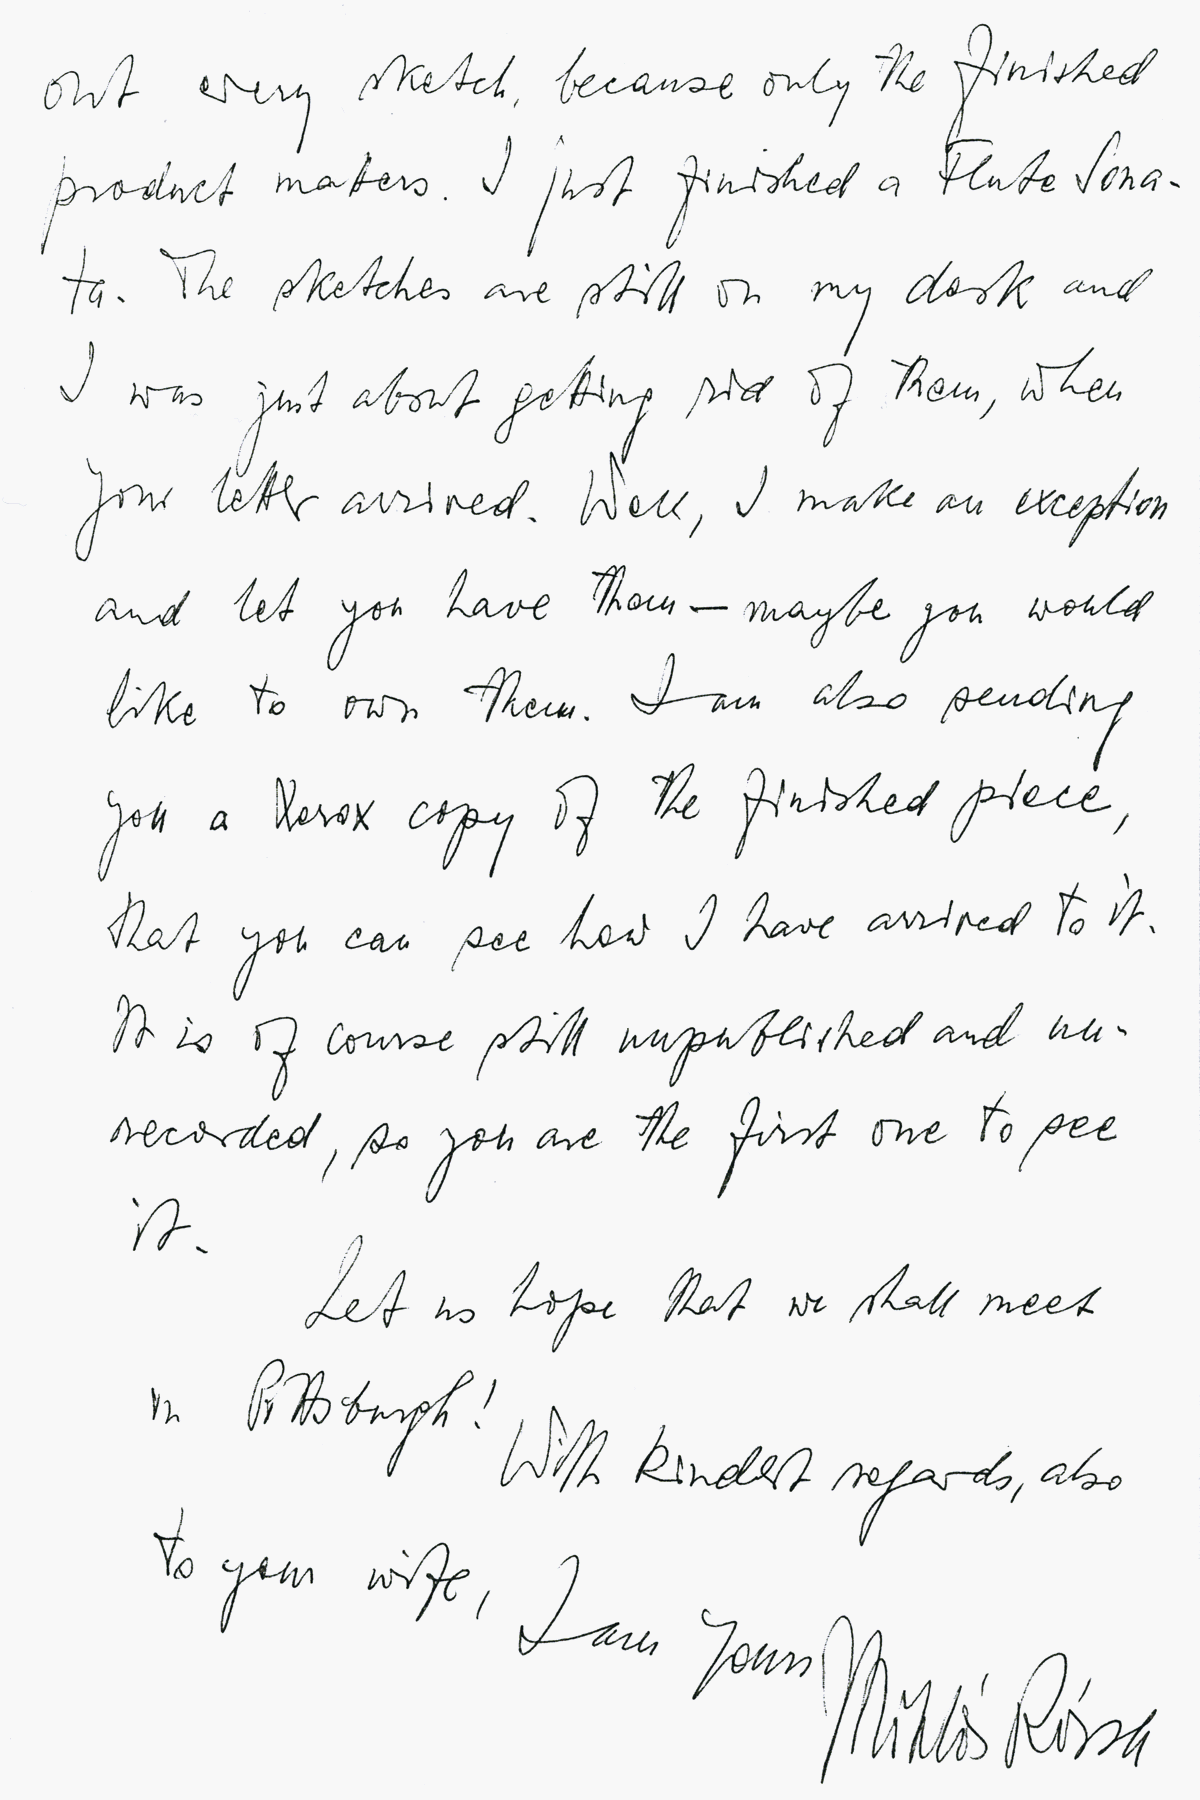 out every sketch, because only the finished
product matters. I just finished a Flute Sona-
ta. The sketches are still on my desk and
I was just about getting rid of them, when
your letter arrived. Well, I make an exception
and let you have them — maybe you would
like to own them. I am also sending
you a Xerox copy of the finished piece,
that you can see how I have arrived to it.
It is of course still unpublished and un-
recorded, so you are the first one to see
it.
Let us hope that we shall meet
in Pittsburgh!
With kindest regards, also
to your wife,
I am Yours
Miklós Rózsa